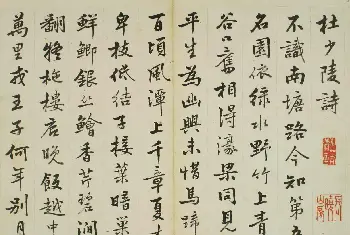 杜少陵詩
不識南塘路今知第五
名園依綠水野竹上青
谷口舊相得濠梁同見
平生為幽興未惜馬蹄
百頃風潭上千章夏木
卑枝低結子接葉暗巢
鮮鯽銀絲鱠香芹碧澗
翻疑柂樓底晚飯越中
萬里戎王子何年別月